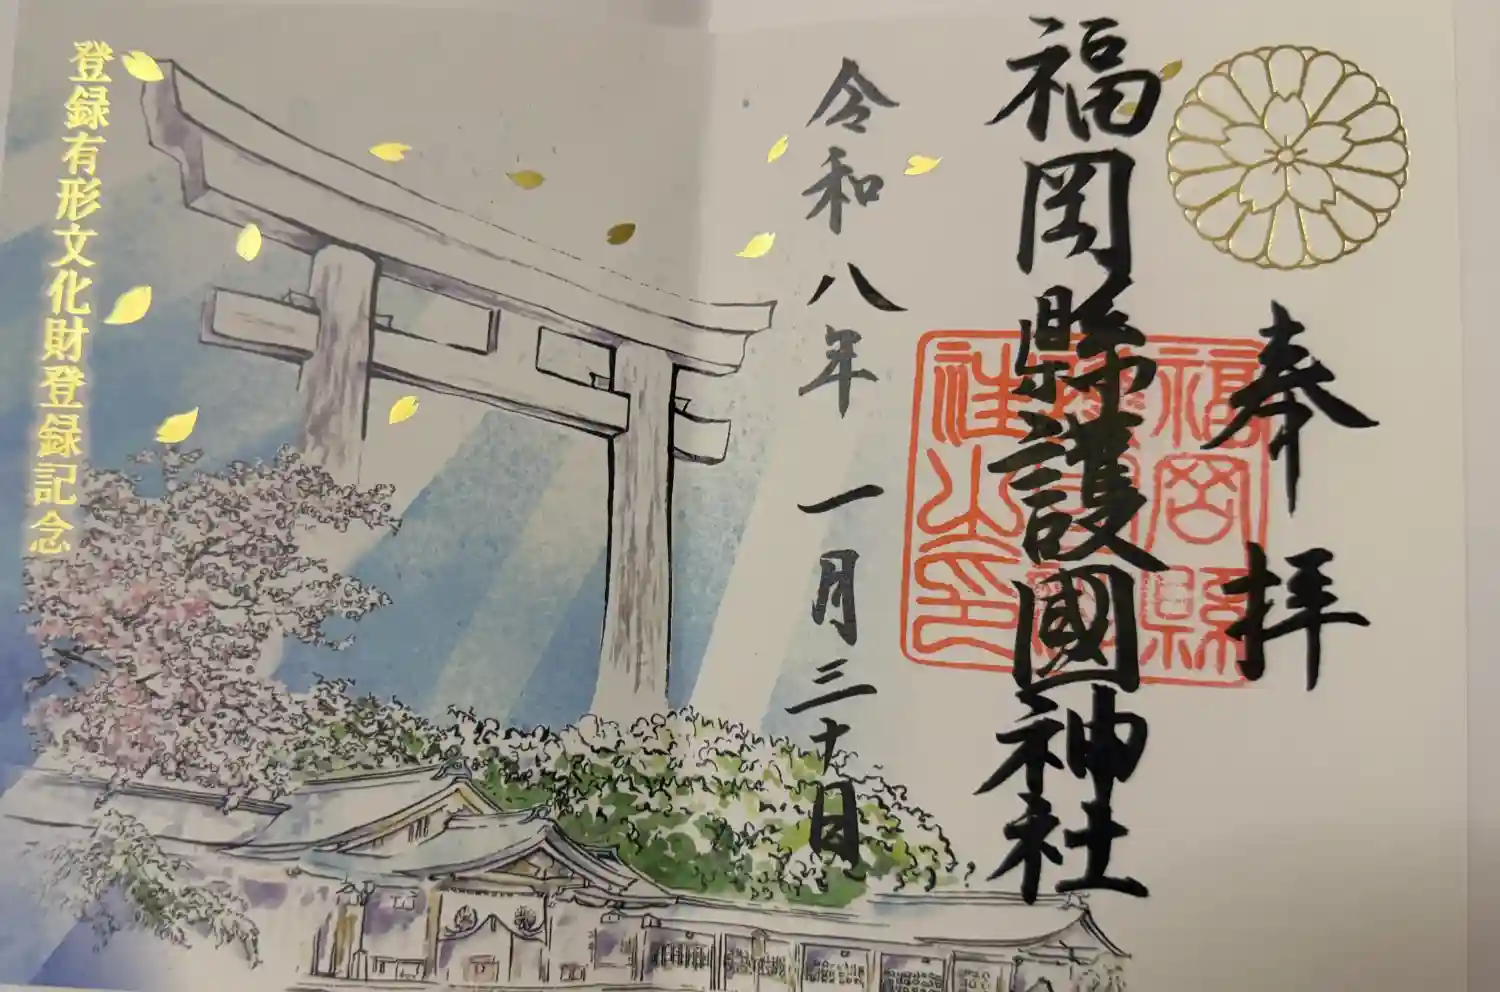 奉拝
福岡縣護國神社
令和八年一月三十日
登録有形文化財登録記念